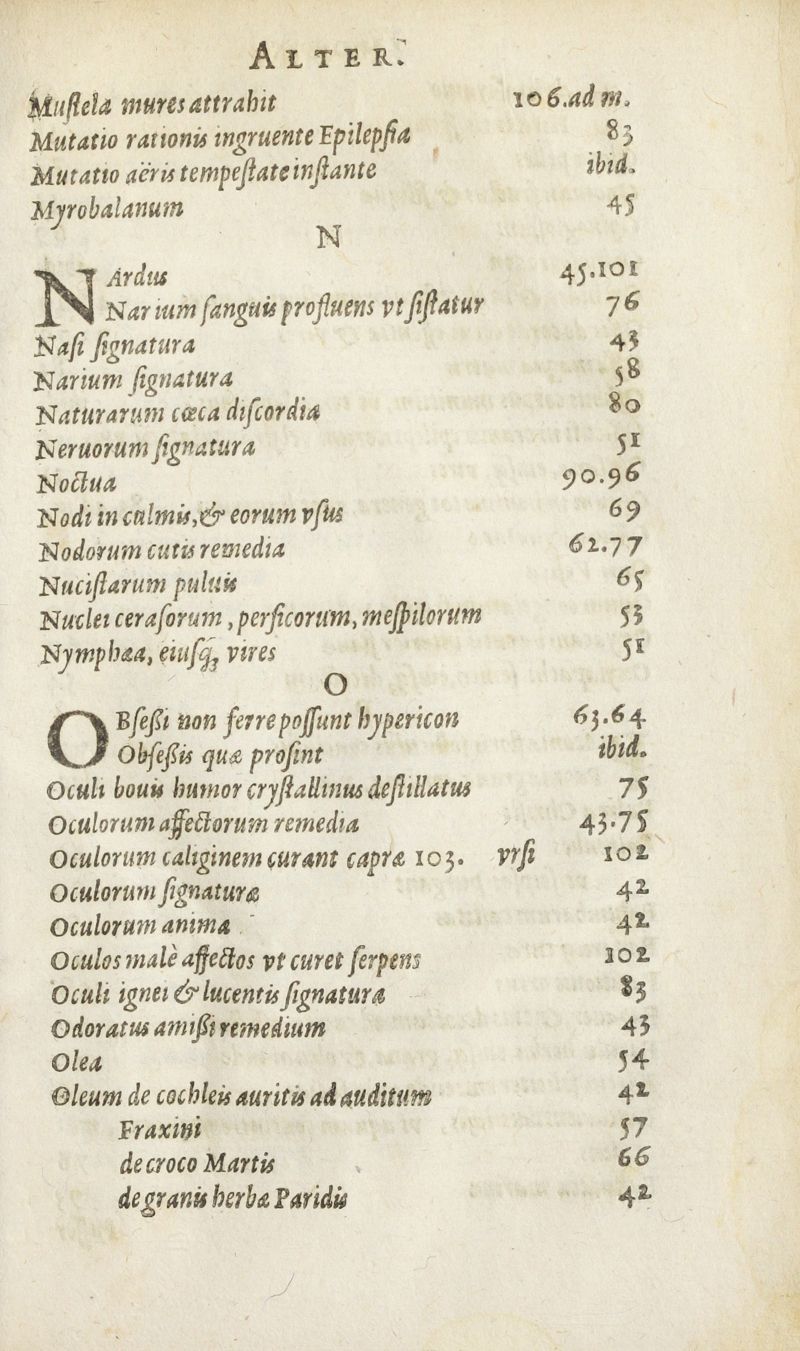 ALTER.
Muſtela mures attrahit 106.ad m.
Mutatio rationis ingruente Epilepſia 83
Mutatio aëris tempeſtate inſtante ibid.
Myrobalanum 45
N
NArdus 45.101
Narium ſanguis profluens vt ſiſtatur 76
Naſi ſignatura 43
Narium ſignatura 58
Naturarum cæca diſcordia 80
Neruorum ſignatura 51
Noctua 90.96
Nodi in culmis,& eorum vſus 69
Nodorum cutis remedia 62.77
Nuciſtarum puluis 65
Nuclei ceraſorum, perſicorum, meſpilorum 53
Nymphæa, eiuſq; vires 51
O
OBſeßi non ferre poſſunt hypericon 63.64
Obſeßis quæ proſint ibid.
Oculi bouis humor cryſtallinus deſtillatus 75
Oculorum affectorum remedia 43.75
Oculorum caliginem curant capræ 103. vrſi 102
Oculorum ſignaturæ 42
Oculorum anima 42
Oculos malè affectos vt curet ſerpens 102
Oculi ignei & lucentis ſignatura 83
Odoratus amißi remedium 43
Olea 54
Oleum de cochleis auritis ad auditum 42
Fraxini 57
de croco Martis 66
de granis herbæ Paridis 42